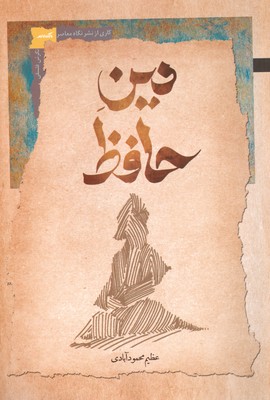 کاری از نشر نگاه معاصر
دینِ
حافظ
عظیم محمودآبادی